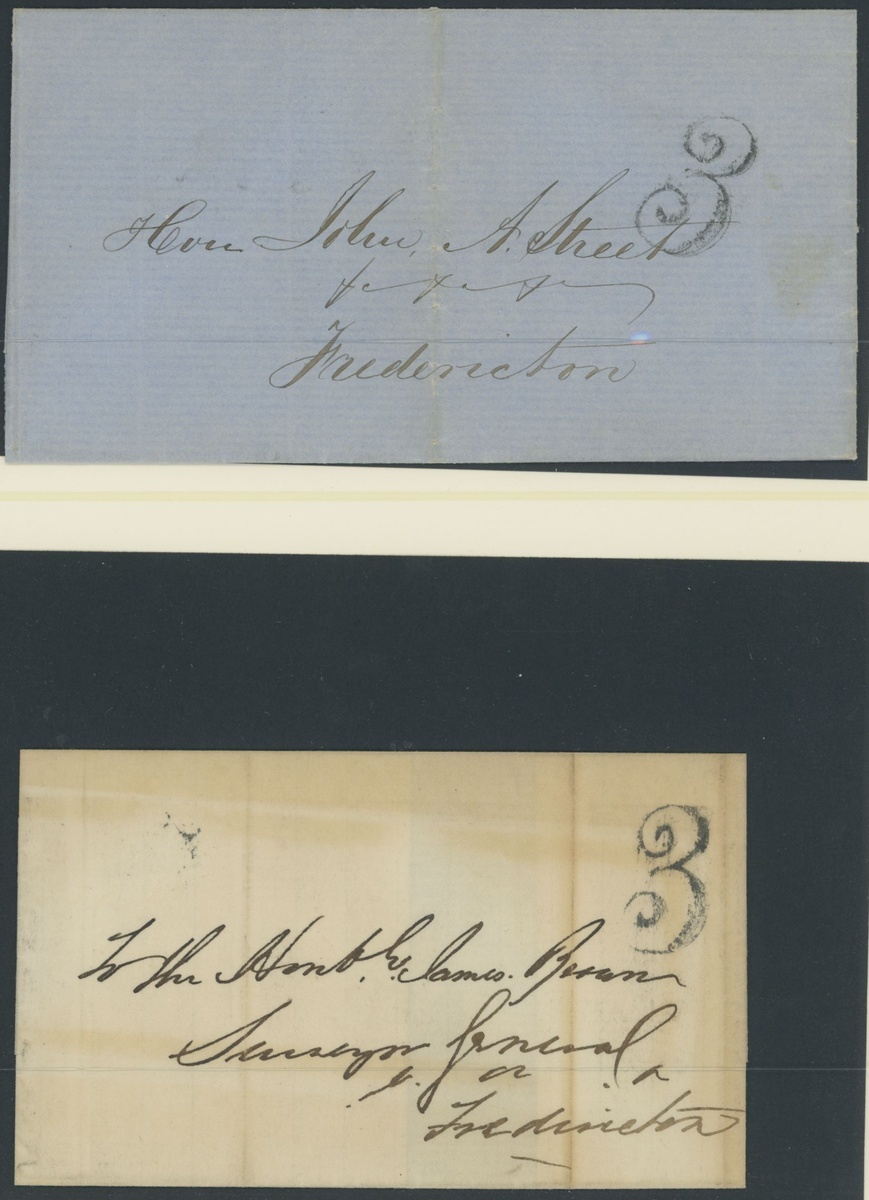 3
Hon John A. Street
&c &c &c
Fredericton
3
To the Honble James Brown
Surveyor General
Fredericton